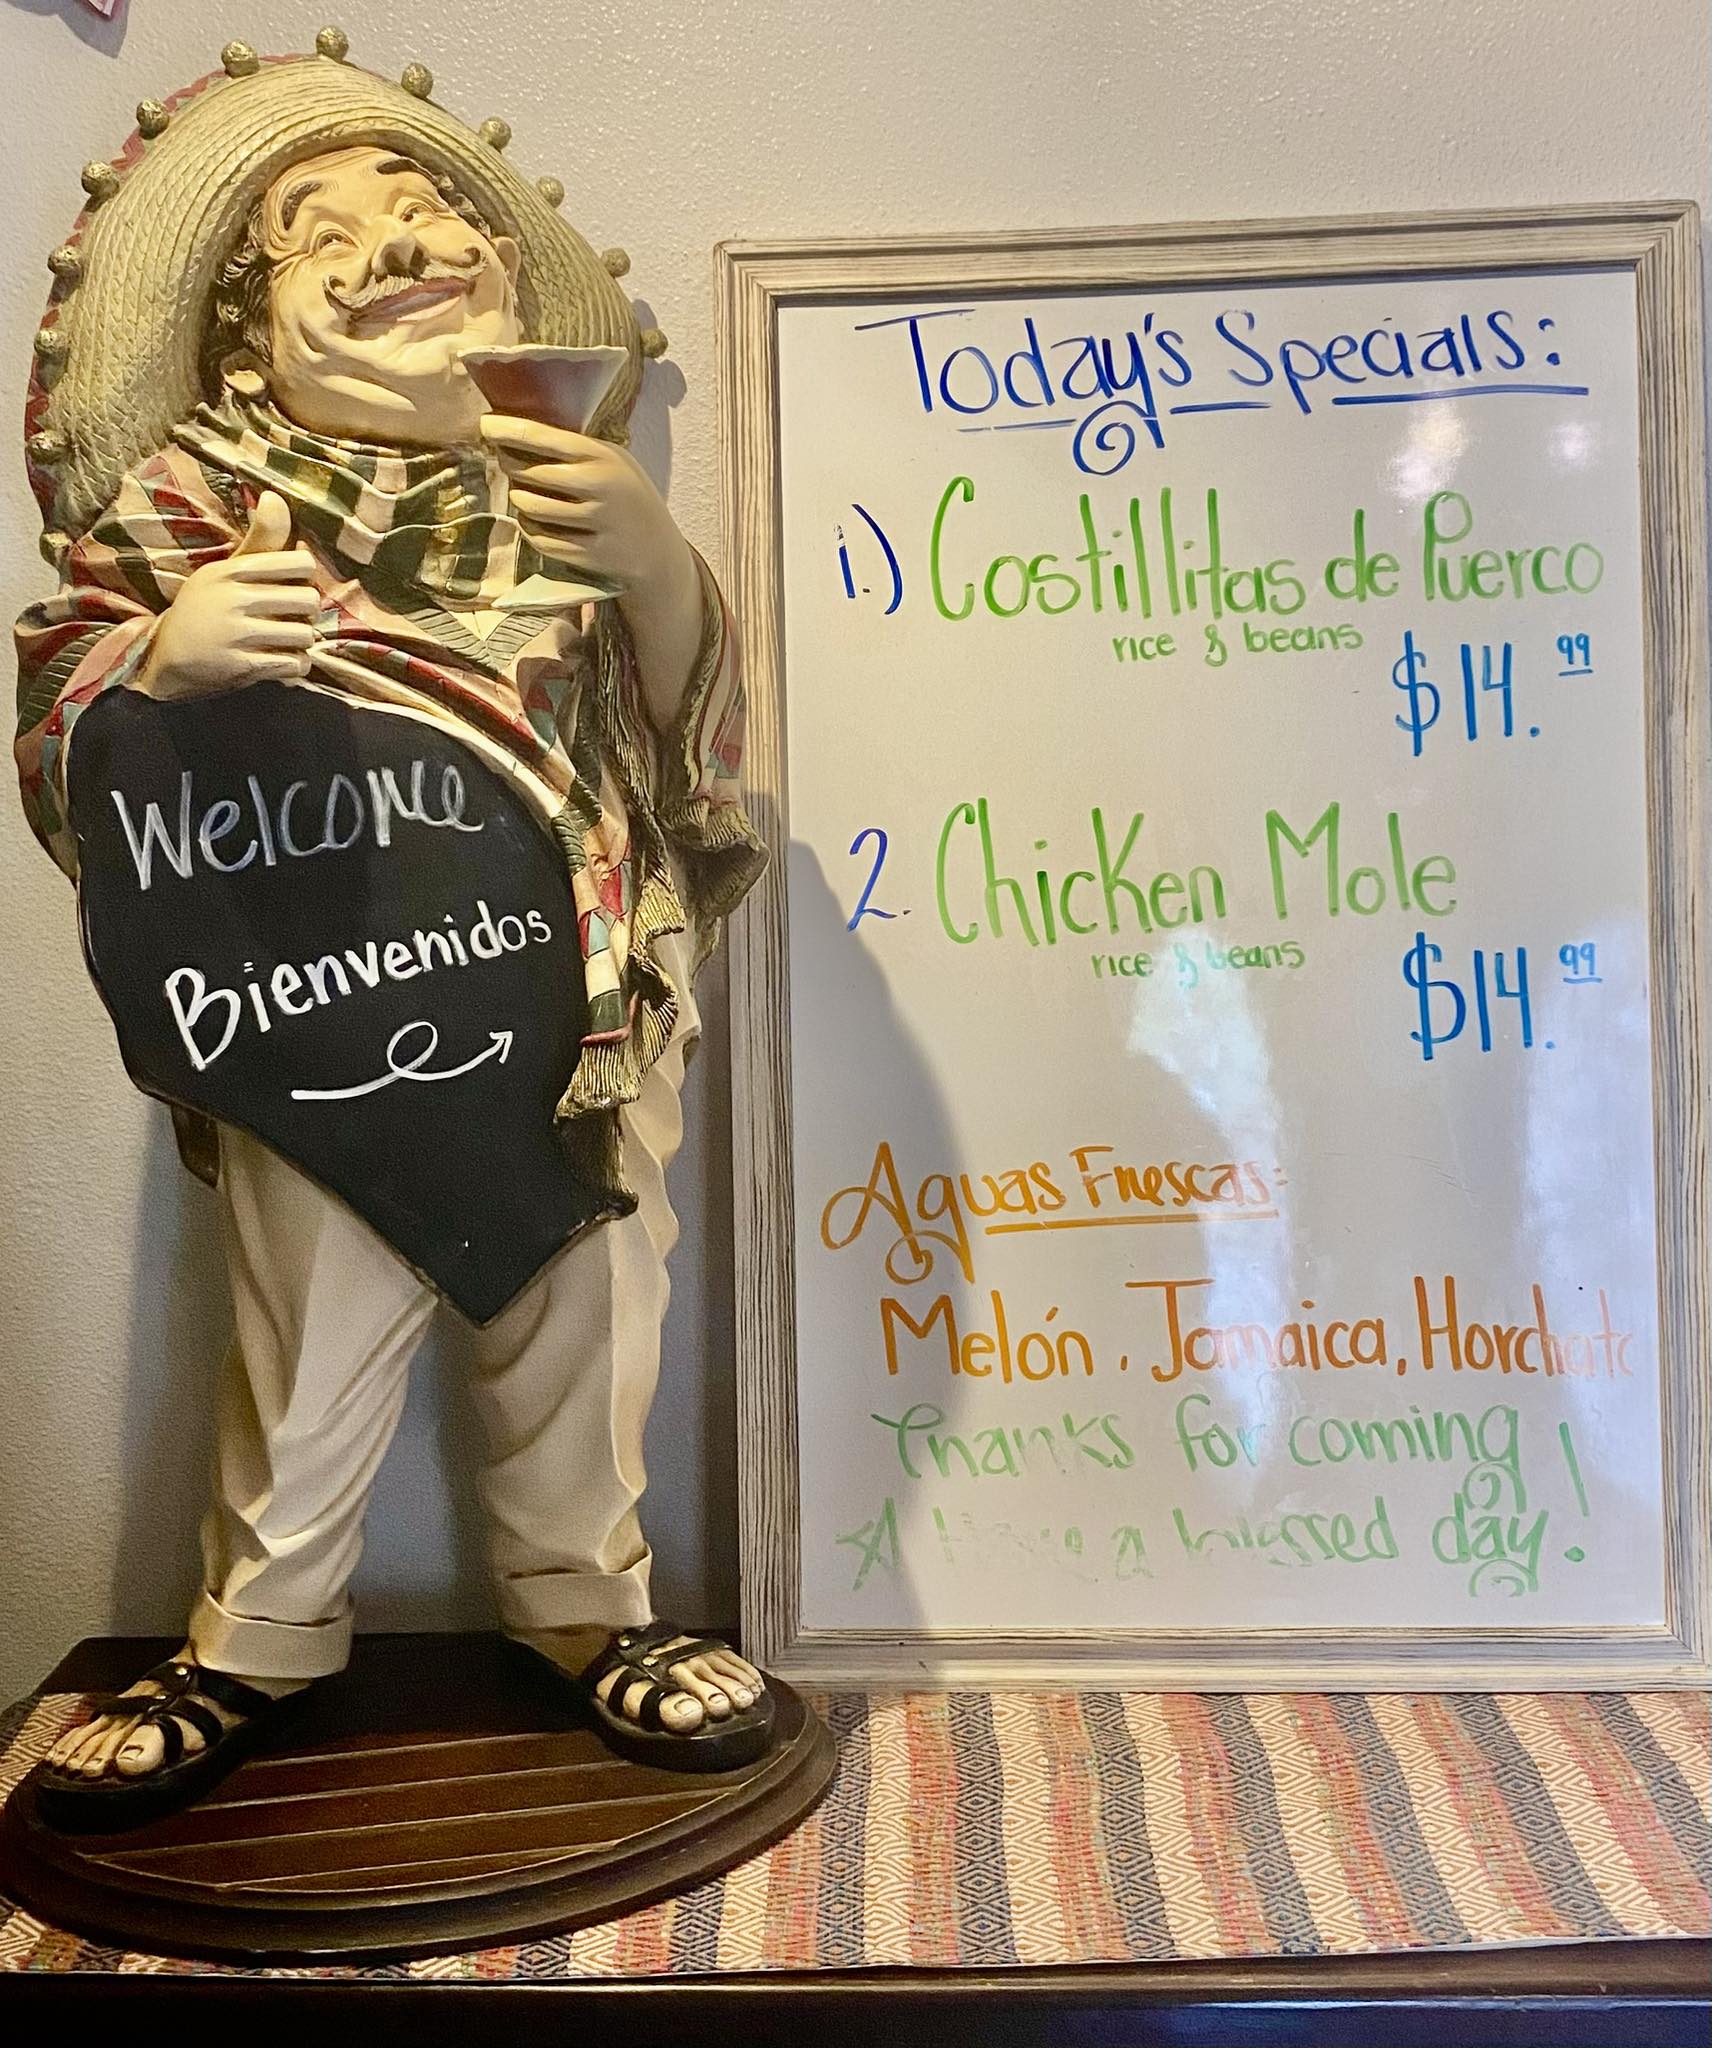 Welcome
Bienvenidos
Today's Specials:
1.) Costillitas de Puerco
rice & beans
$14.99
2. Chicken Mole
rice & beans
$14.99
Aguas Frescas:
Melón, Jamaica, Horchata
Thanks for coming
Have a blessed day!